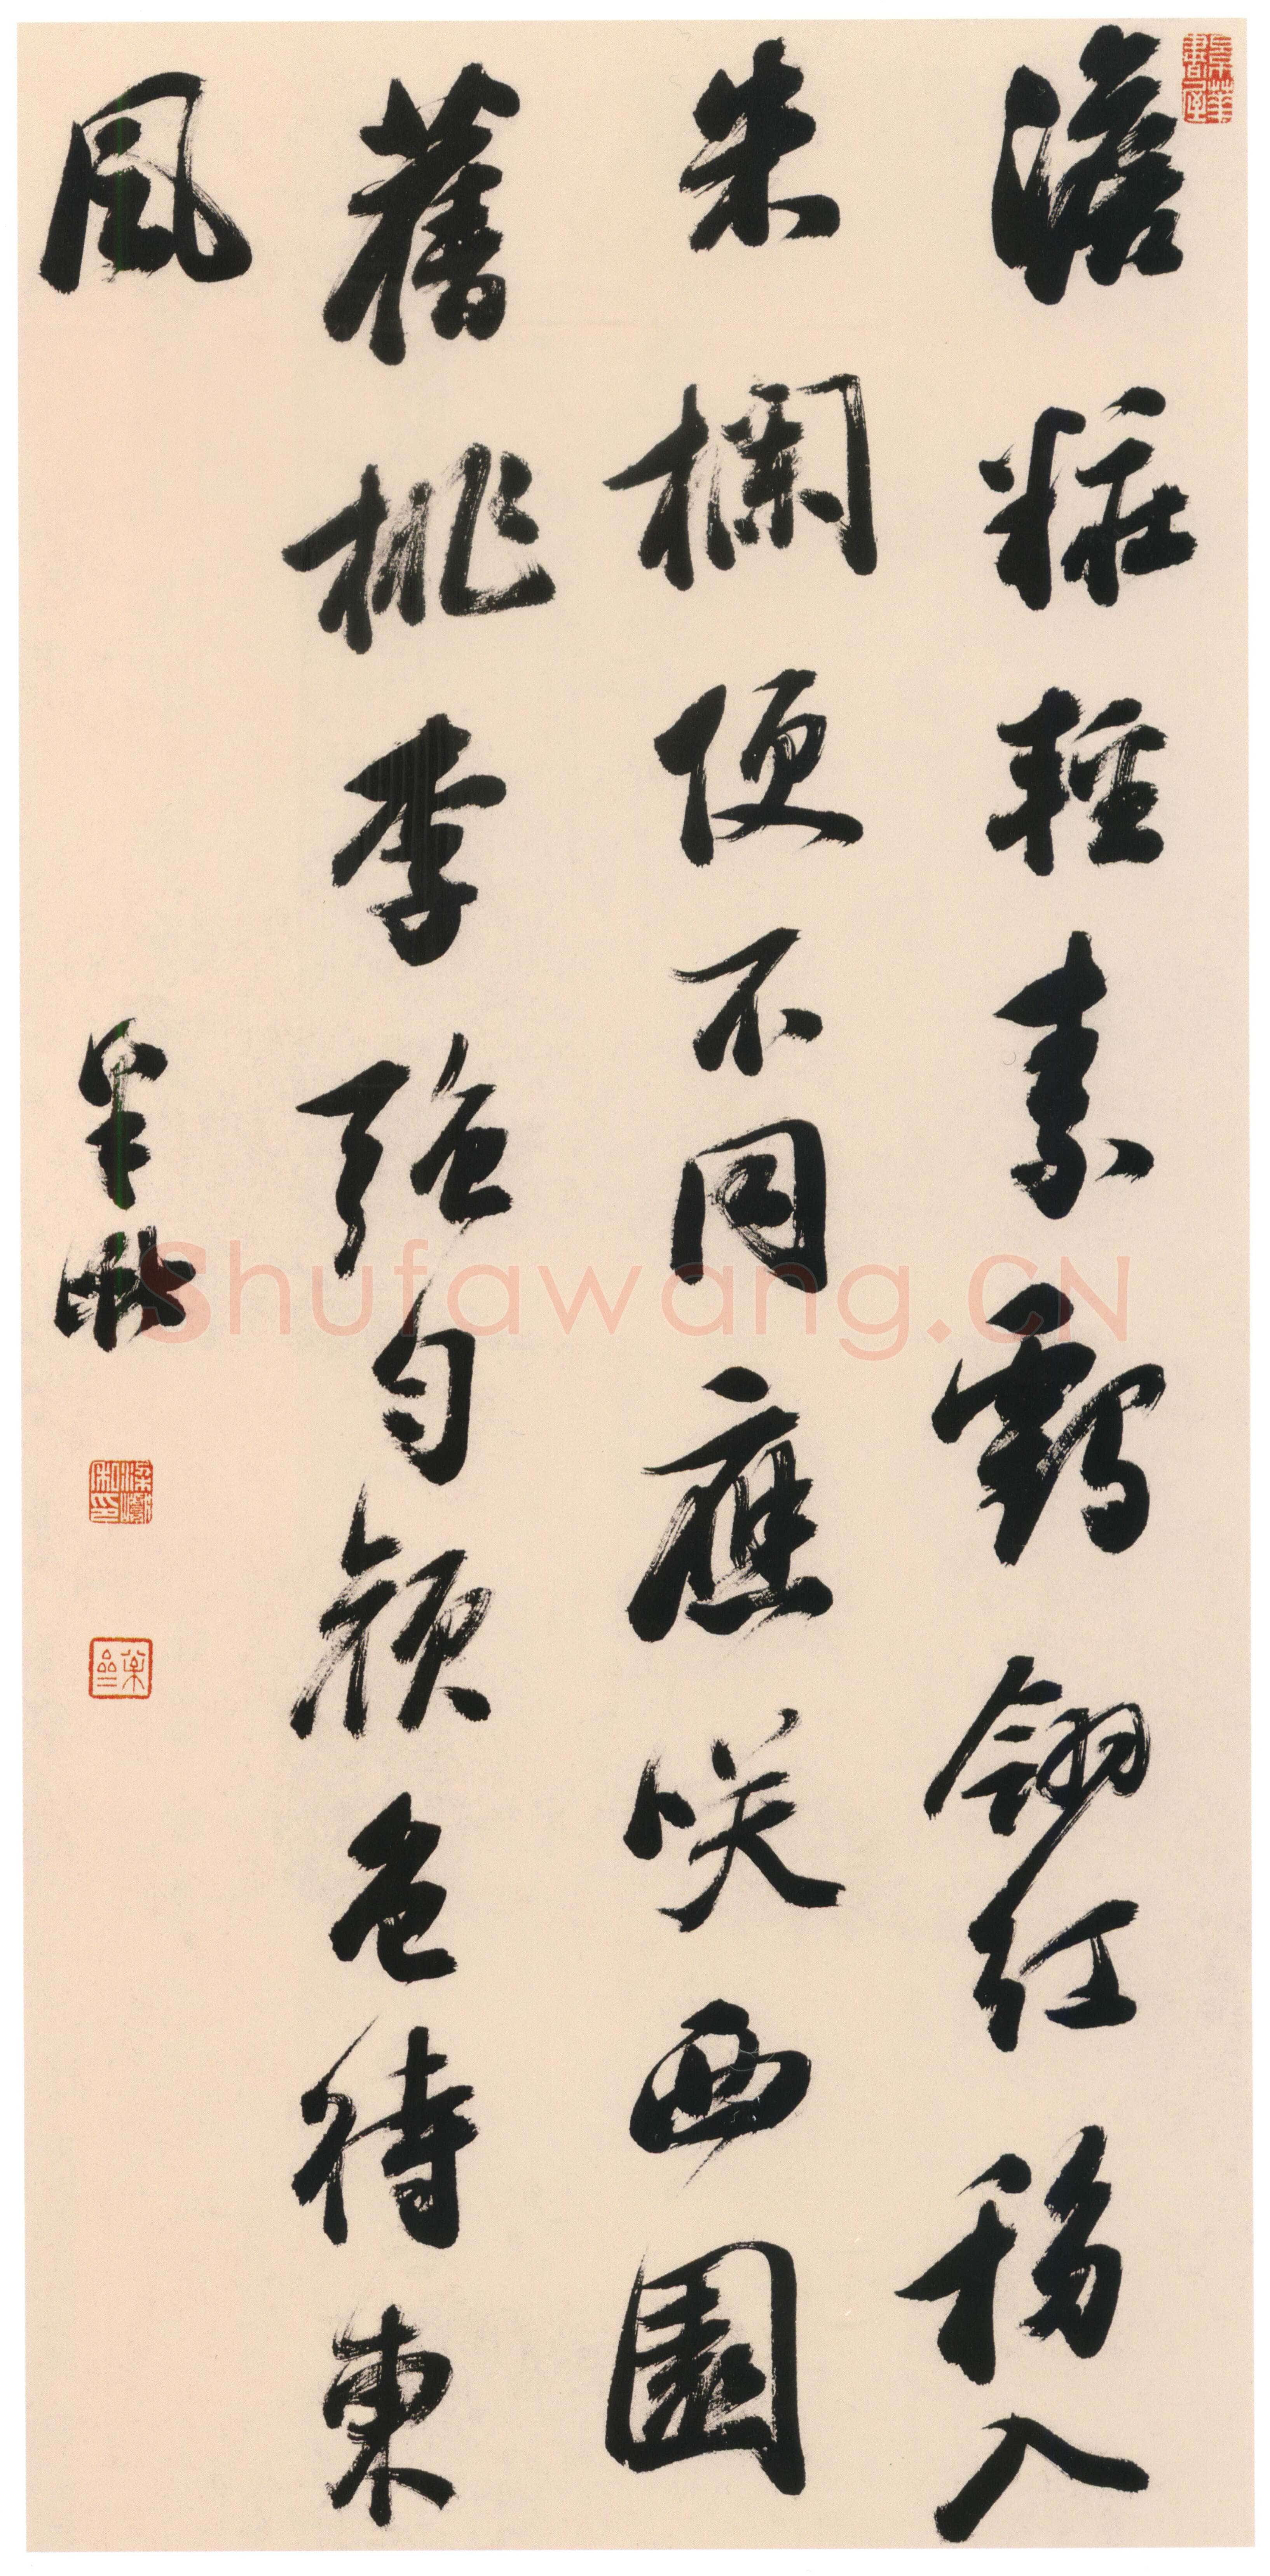 澹粧輕素鶴翎紅移入
朱欄便不同應咲西園
舊桃李強勻顏色待東
風
梁巘
梁巘私印
Shufawang.CN